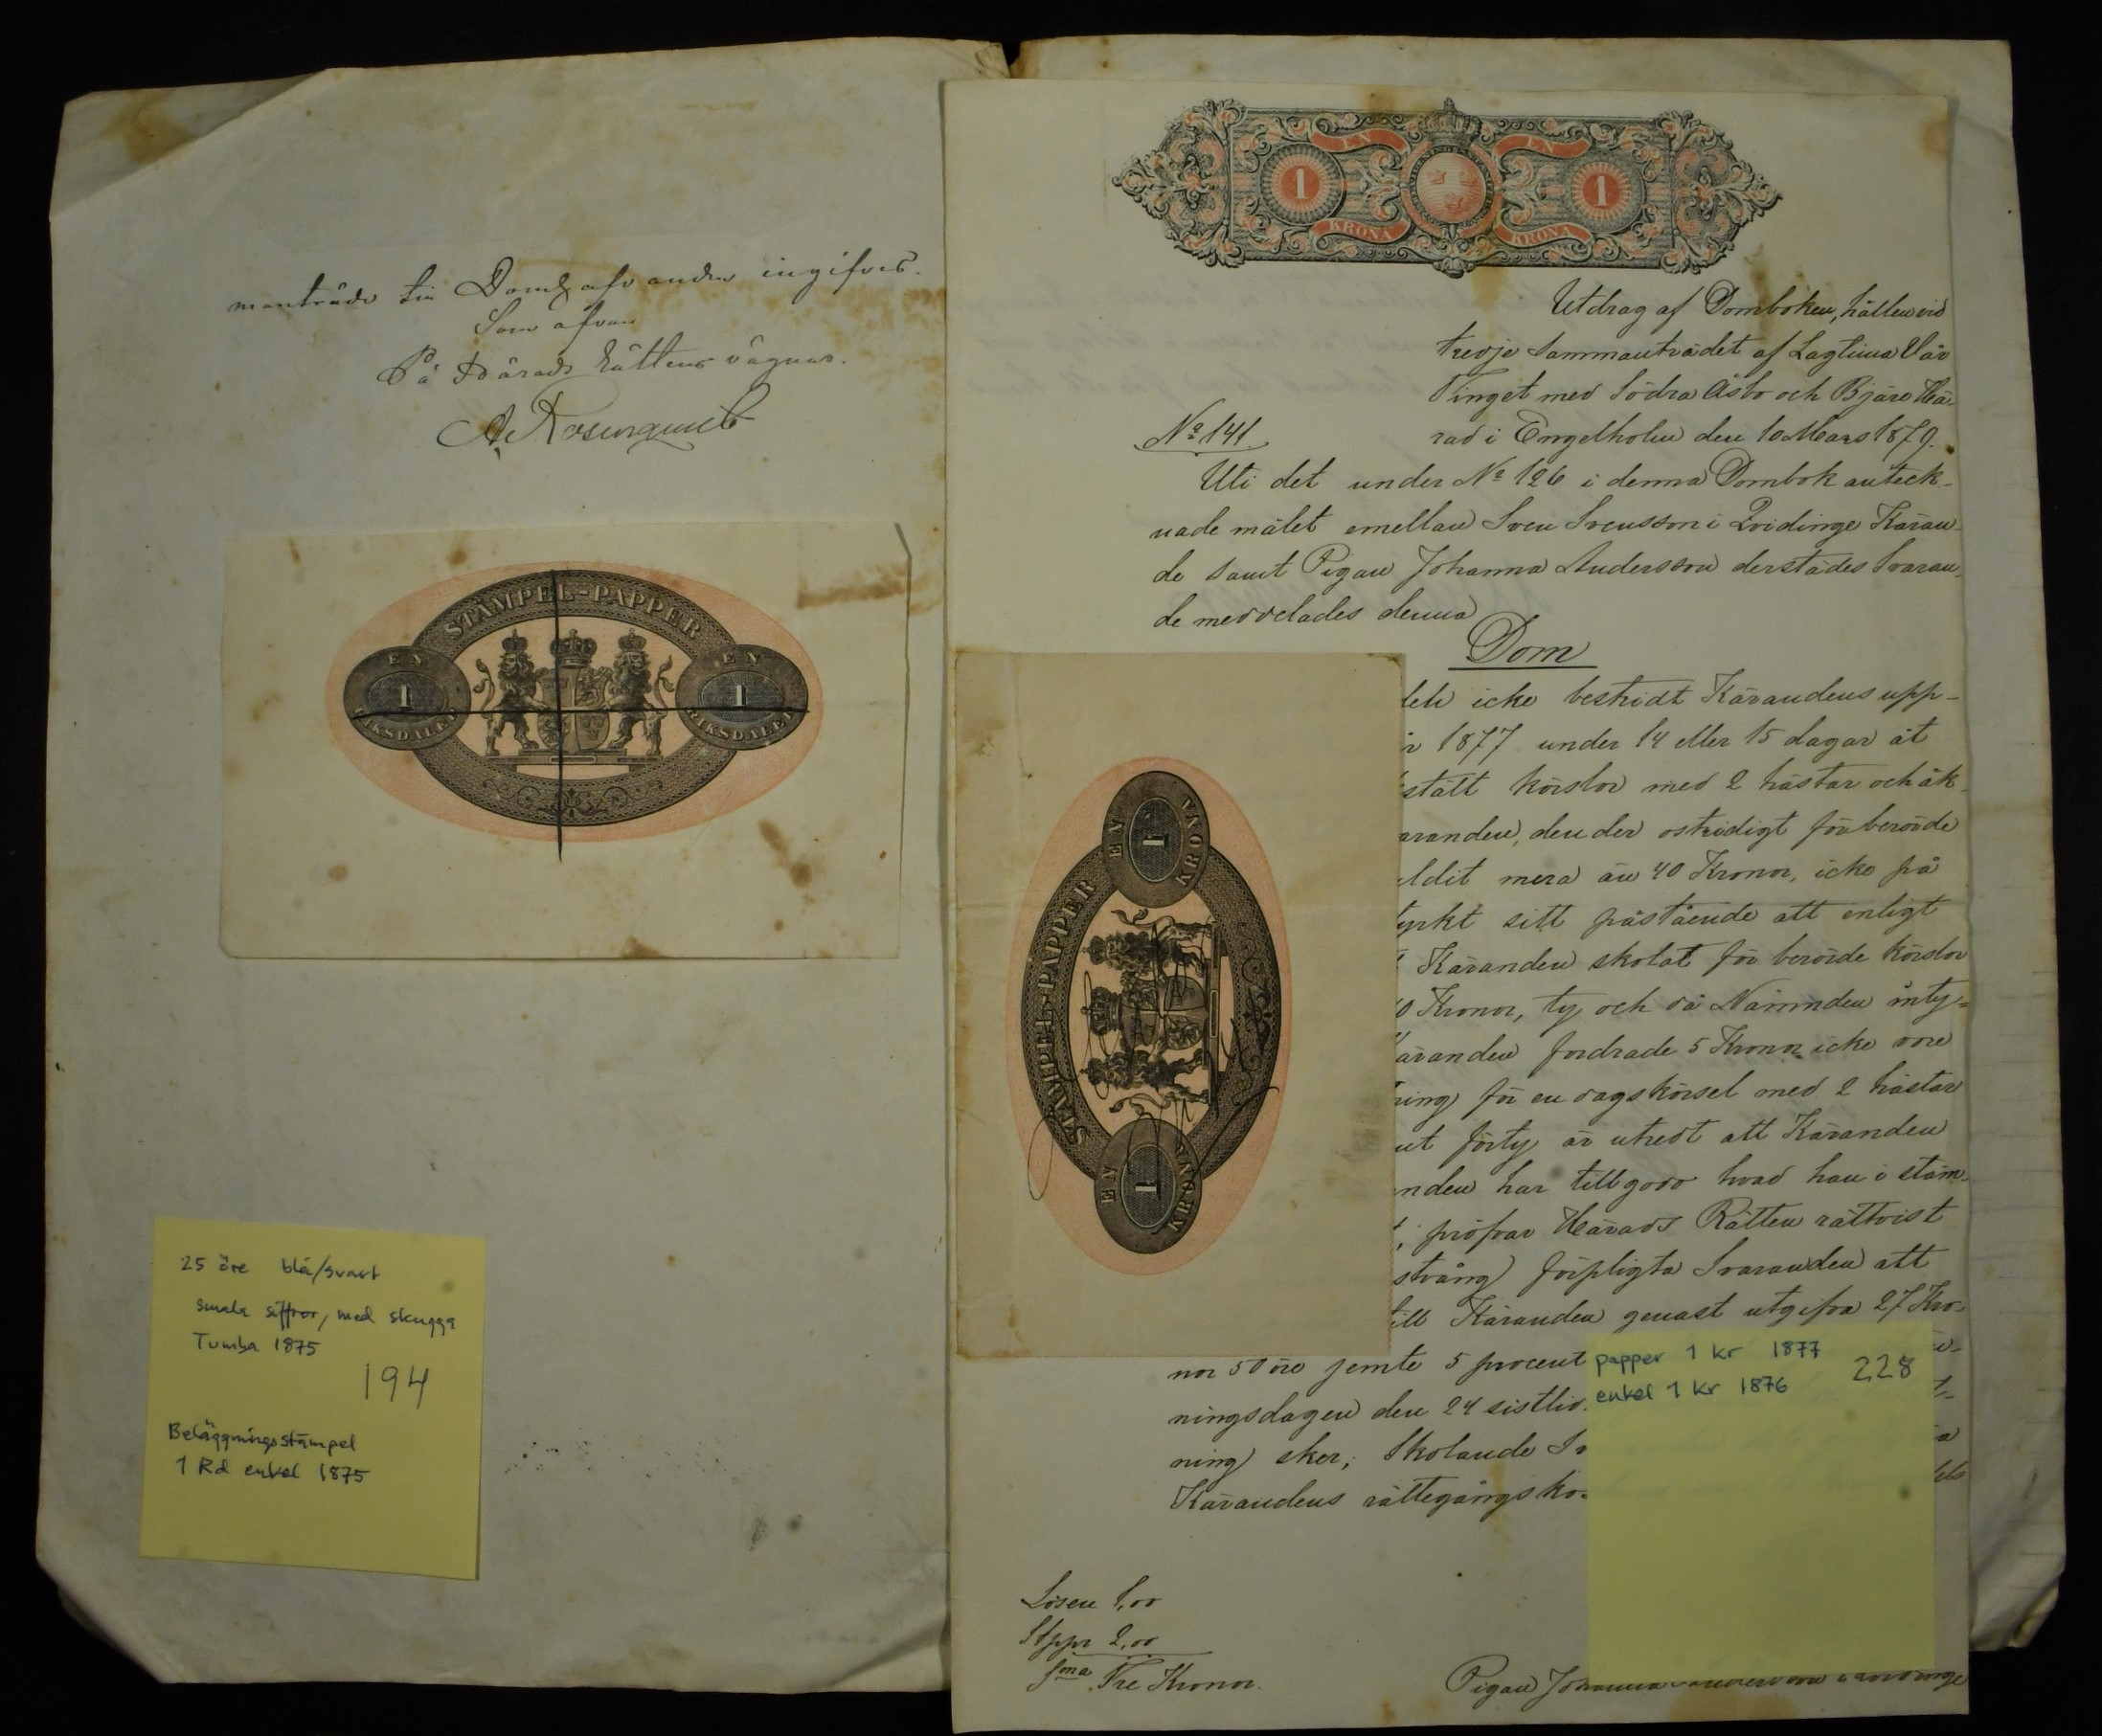 manträde till Domhafvanden ingifvas.
Som ofvan
På Härads Rättens vägnar.
A. Rosenquist
STÄMPEL-PAPPER
EN 1 RIKSDALER
EN 1 RIKSDALER
25 öre blå/svart
smala siffror, med skugga
Tumba 1875
194
Beläggningsstämpel
1 Rd enkel 1875
EN EN
1 1
KRONA KRONA
Utdrag af Domboken, hållen vid
tredje Sammanträdet af Lagtima Vår
Tinget med Södra Åsbo och Bjäre Hä-
rad i Engelholm den 10 Mars 1879.
No 141.
Uti det under No 126 i denna Dombok anteck-
nade målet emellan Sven Svensson i Qvidinge Käran-
de samt Pigan Johanna Andersson derstädes Svaran-
de meddelades denna
Dom
icke bestridt Kärandens upp-
1877 under 14 eller 15 dagar åt
stält körslor med 2 hästar och åk-
randen, den der ostridigt för berörde
ldit mera än 40 Kronor, icke på
yrkt sitt påstående att enligt
Käranden skolat för berörde körslor
0 Kronor, ty och då Nämnden inty-
äranden fordrade 5 Kronor icke vore
ning för en dagskörsel med 2 hästar
ut förty är utredt att Käranden
nden har tillgodo hvad han i stäm-
, pröfvar Härads Rätten rättvist
stvång förpligta Svaranden att
till Käranden genast utgifva 27 Kro-
nor 50 öre jemte 5 procent
ningsdagen den 24 sistlid.
ning sker; Skolande Sv
Kärandens rättegångsko-
STÄMPEL-PAPPER
EN 1 KRONA
EN 1 KRONA
papper 1 kr 1877
enkel 1 kr 1876
228
Lösen 1,00
Stppr 2,00
Sma Tre Kronor.
Pigan Johanna Andersson i Qvidinge